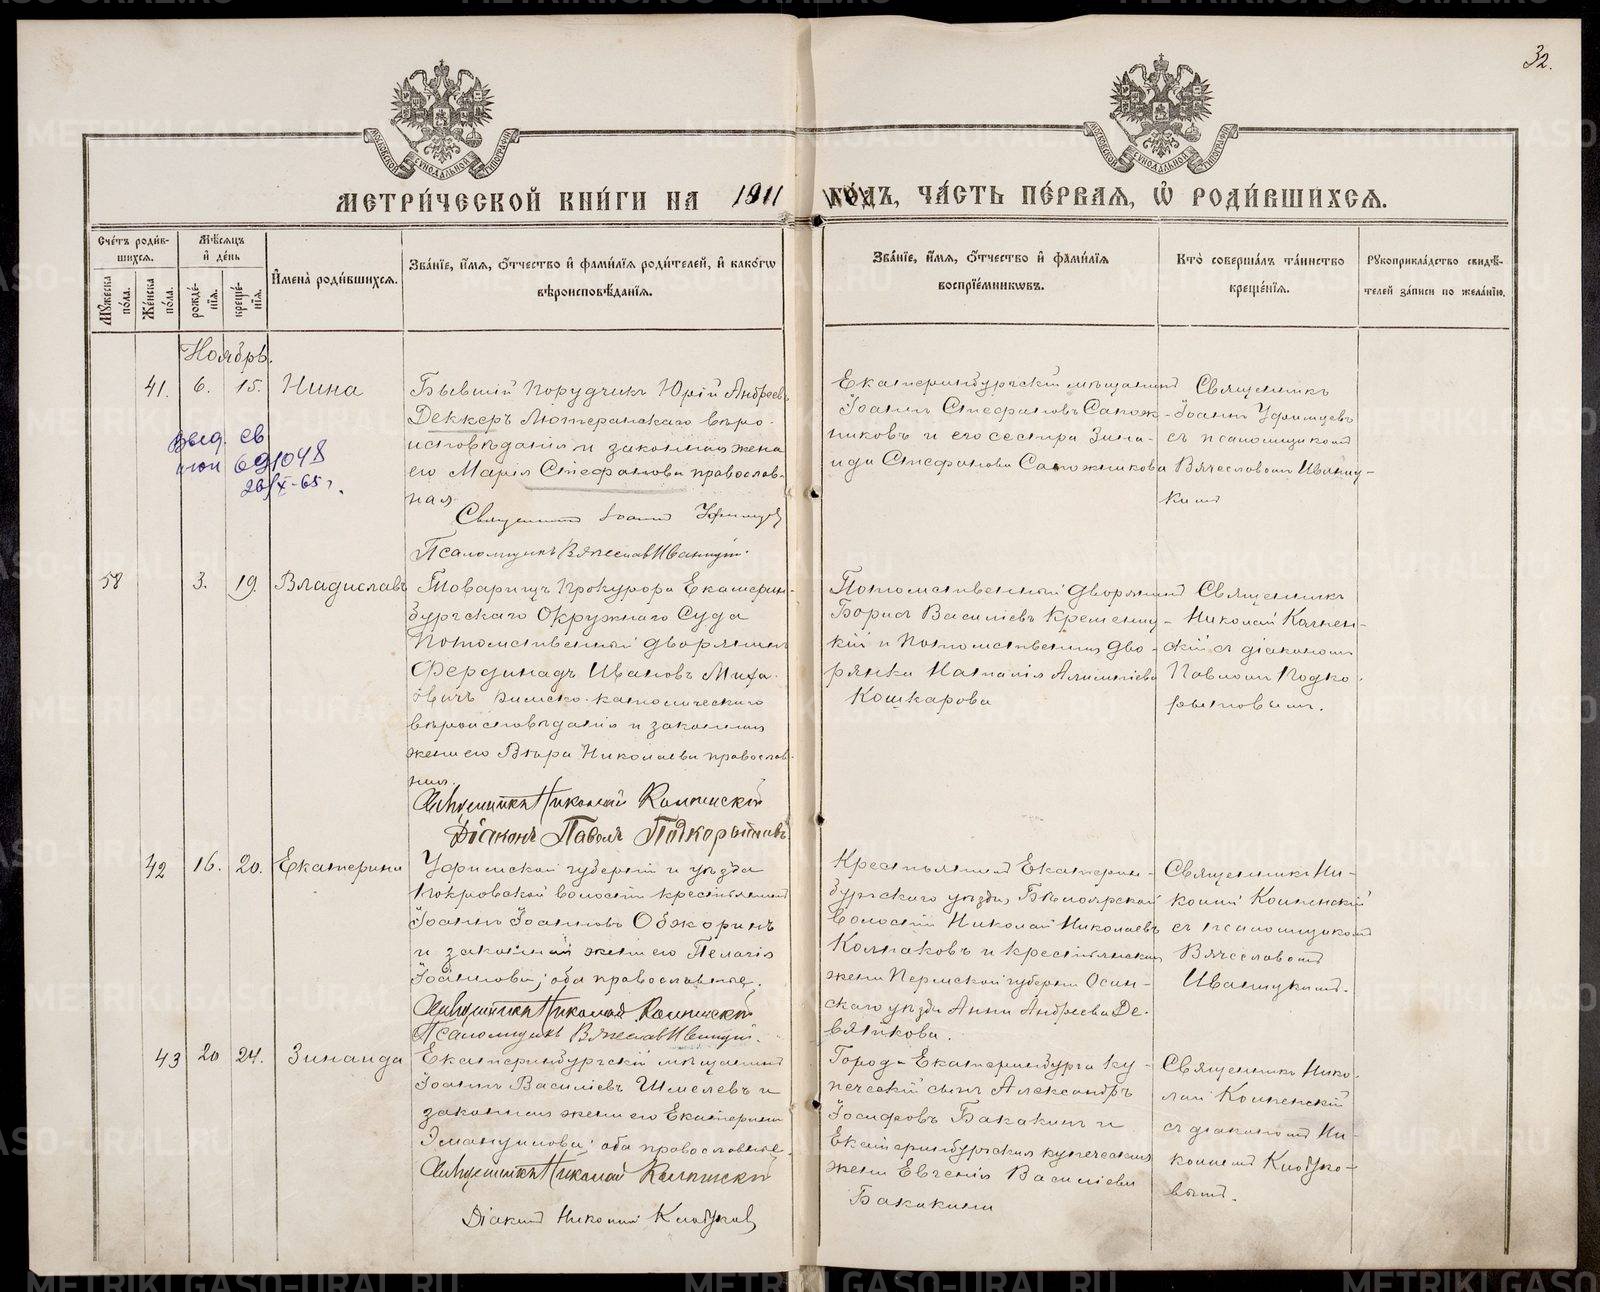 32.
МОСКОВСКОЙ СѴНОДАЛЬНОЙ ТИПОГРАФІИ
МОСКОВСКОЙ СѴНОДАЛЬНОЙ ТИПОГРАФІИ
МЕТРИ́ЧЕСКОЙ КНИ́ГИ НА 1911 ГО́ДЪ, ЧА́СТЬ ПЕ́РВАЯ, Ѡ҆ РОДИ́ВШИХСЯ.
Счётъ роди́в-
шихся.
Мꙋ́жеска
по́ла.
Же́нска
по́ла.
Мѣ́сяцъ
и҆ де́нь
рожде́-
нїя.
креще́-
нїя.
И҆мена̀ роди́вшихся.
Зва́нїе, и҆́мя, ѻ҆́тчество и҆ фами́лїя роди́телей, и҆ како́гѡ
вѣроисповѣ́данїя.
Зва́нїе, и҆́мя, ѻ҆́тчество и҆ фами́лїя
воспрїе́мникѡвъ.
Кто̀ соверша́лъ та́инство
креще́нїя.
Рꙋкоприкла́дство свидѣ́-
телей за́писи по жела́нїю.
Ноябрь.
41. 6. 15. Нина
Бывшій Порудчикъ Юрій Андреевъ
Деккеръ Лютеранскаго вѣро-
исповѣданія и законная жена
его Марія Стефанова православ-
ная.
Священникъ Іоаннъ Уфимцевъ
Псаломщикъ Вячеславъ Иваницкій.
Екатеринбургскій мѣщанинъ
Іоаннъ Стефановъ Сапож-
никовъ и его сестра Зина-
ида Стефанова Сапожникова
Священникъ
Іоаннъ Уфимцевъ
съ псаломщикомъ
Вячеславомъ Иваниц-
кимъ
выд. св
691048
26/X-65 г.
58 3. 19. Владиславъ
Товарищъ Прокурора Екатерин-
бургскаго Окружнаго Суда
Потомственный дворянинъ
Фердинадъ Ивановъ
овичъ Римско-католическаго
вѣроисповѣданія и законная
жена его Вѣра Николаева православ-
ная.
Священникъ Николай Калпинскій
Діаконъ Павелъ Подкорытовъ
Потомственный дворянинъ
Борисъ Василіевъ
и Потомственная дво-
рянка Наталія
Кошкарова
Священникъ
Николай
скій съ діакономъ
Павломъ Подко-
рытовымъ.
42 16. 20. Екатерина
Уфимской губерніи и уѣзда
Покровской волости крестьянинъ
Іоаннъ Іоанновъ Обжоринъ
и законная жена его Пелагія
Іоаннова; оба православные.
Священникъ Николай Калпинскій
Псаломщикъ Вячеславъ Иваницкій.
Крестьянинъ Екатерин-
бургскаго уѣзда, Бѣлоярской
волости Николай Николаевъ
Колпаковъ и крестьянская
жена Пермской губерніи Осин-
скаго уѣзда Анна Андреева Де-
вяткова.
Священникъ Ни-
колай
съ псаломщикомъ
Вячеславомъ
Иваницкимъ.
43 20 24. Зинаида
Екатеринбургскій мѣщанинъ
Іоаннъ Василіевъ Шмелевъ и
законная жена его Екатерина
Эмануилова; оба православные.
Священникъ Николай Калпинскій
Діаконъ Николай Клобуковъ
Города Екатеринбурга ку-
печескій сынъ Александръ
Іосифовъ Бакакинъ и
Екатеринбургская купеческая
жена Евгенія Василіева
Бакакина
Священникъ Нико-
лай
съ діакономъ Ни-
колаемъ Клобуко-
вымъ.
METRIKI.GASO-URAL.RU